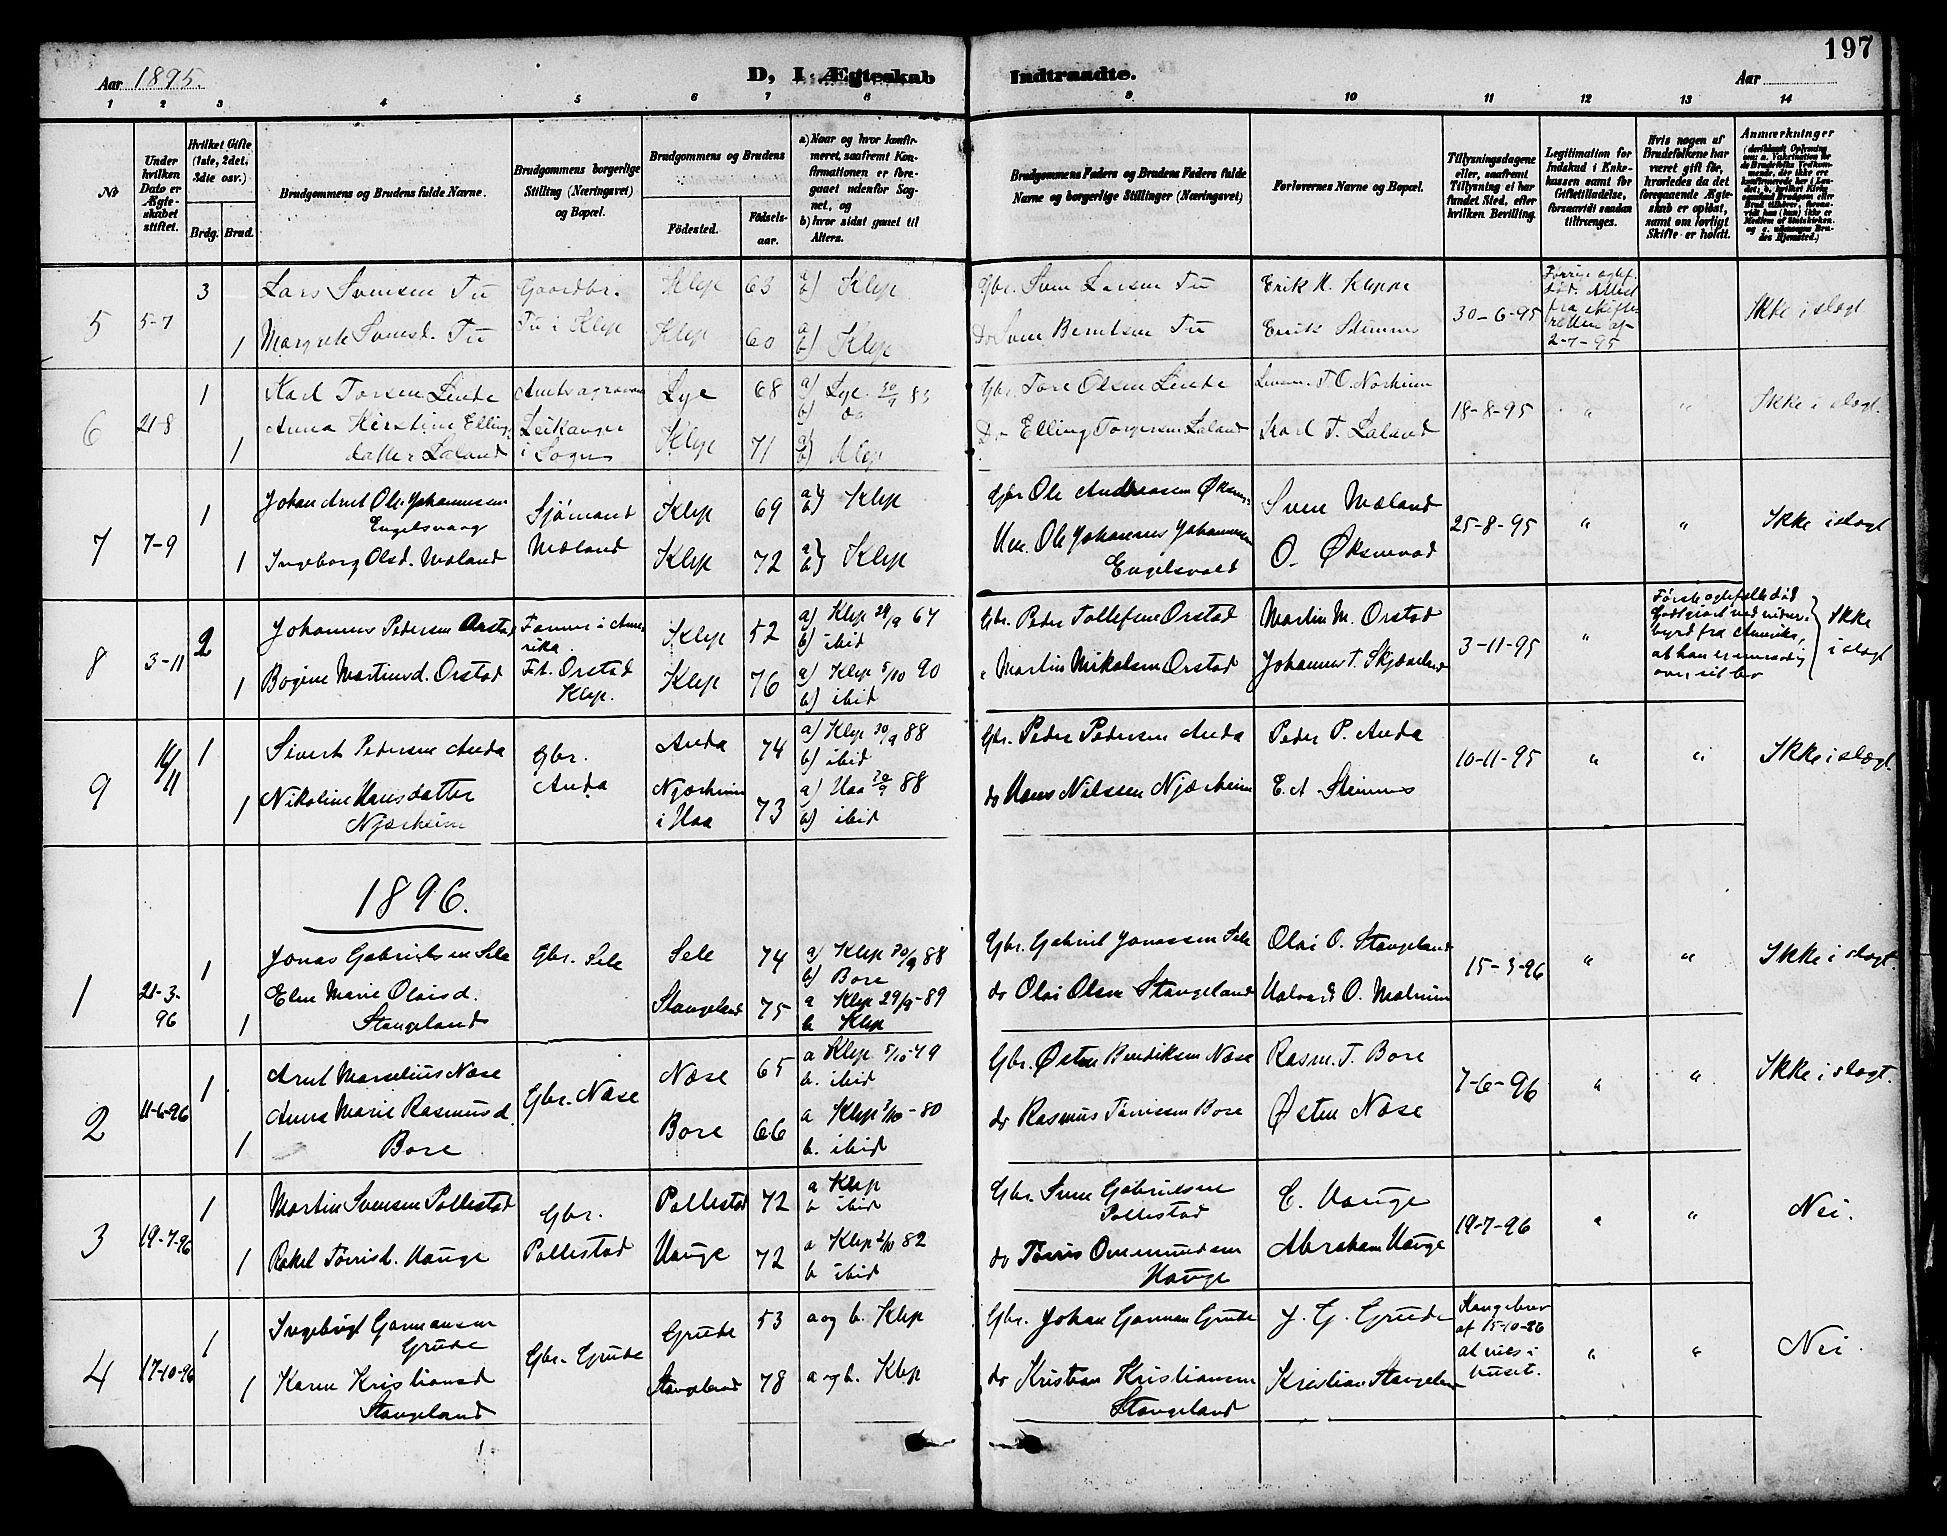 197
Aar 1895.
D, I. Ægteskab Indtraadte.
Aar
1 2 3 4 5 6 7 8 9 10 11 12 13 14
No
Under hvilken Dato er Ægteskabet stiftet.
Hvilket Gifte (1ste, 2det, 3die osv.)
Brdg. Brud.
Brudgommens og Brudens fulde Navne.
Brudgommens borgerlige Stilling (Næringsvei) og Bopæl.
Brudgommens og Brudens
Födested.
Födselsaar.
a) Naar og hvor konfirmeret, saafremt Konfirmationen er foregaaet udenfor Sognet, og
b) hvor sidst gaaet til Alters.
Brudgommens Faders og Brudens Faders fulde Navne og borgerlige Stillinger (Næringsvei)
Forlovernes Navne og Bopæl.
Tillysningsdagene eller, saafremt Tillysning ei har fundet Sted, efter hvilken Bevilling.
Legitimation for Indskud i Enkekassen samt for Giftetilladelse, forsaavidt saadan tiltrænges.
Hvis nogen af Brudefolkene har været gift før, hvorledes da det foregaaende Ægteskab er opløst, samt om lovligt Skifte er holdt.
Anmærkninger
5 5-7 3 Lars Svensen Tu Gaardbr. Klep 63 a) b) Klep Gbr. Sven Larsen Tu Erik H. Kleppe 30-6-95 Ikke i slegt
1 Margrete Svensd. Tu Tu i Klep Klep 60 a) b) Klep Do Sven Berntsen Tu Erik Stimnes 2-7-95
6 21-8 1 Karl Torsen Linde Lye 68 a) Lye 30/9 83 b) do Gbr. Tore Olsen Linde T. O. Norheim 18-8-95 " " Ikke i slegt.
1 Anna Kirstine Ellingsdatter Laland Leikanger i Sogn Klep 71 a) b) Klep Do Elling Torgersen Laland Karl T. Laland
7 7-9 1 Johan Arnt Ole Johannesen Engelsvaag Sjömand Klep 69 a) b) Klep Gbr Ole Andreasen Sven Mæland 25-8-95 " " Ikke i slegt
1 Ingeborg Olsd. Mæland Mæland Klep 72 a) b) Klep Ole Johannes Johannesen Engelsvold O. Øksnevad
8 3-11 2 Johannes Pedersen Orstad Farmer i Amerika. Klep 52 a) Klep 29/9 67 b) ibid Gbr. Peder Tollefsen Orstad Martin M. Orstad 3-11-95 " Ikke i slegt
1 Bogine Martinsd. Orstad Orstad Klep. Klep 76 a) Klep 5/10 90 b) ibid " Martin Mikalsen Orstad Johannes T. Skjæveland
9 16/11 1 Sivert Pedersen Anda Gbr. Anda Anda 74 a) Klep 30/9 88 b) ibid Gbr. Peder Pedersen Anda Peder P. Anda 10-11-95 " " Ikke i slegt.
1 Nikoline Hansdatter Njærheim Njærheim i Haa 73 a) Haa 30/9 88 b) ibid do Hans Nilssen Njærheim E. A Stimnes
1896.
1 21-3-96 1 Jonas Gabrielsen Sele Gbr. Sele Sele 74 a) Klep 30/9 88 b) Bore Gbr. Gabriel Jonassen Sele Olai O. Stangeland 15-3-96 " " Ikke i slegt.
1 Elen Marie Olaisd. Stangeland Stangeland 75 a Klep 29/9-89 b Klep do Olai Olsen Stangeland Halvard O. Malmin
2 11-6-96 1 Arnt Marselius Næse Gbr. Næse Næse 65 a Klep 5/10-79 b. ibid Gbr. Østen Bendiksen Næse Rasm. T. Bore 7-6-96 " " Ikke i slegt.
1 Anna Marie Rasmusd. Bore Bore 66 a Klep 3/10-80 b. ibid do Rasmus Tørresen Bore Østen Næse
3 19-7-96 1 Martin Svensen Pollestad Gbr. Pollestad Pollestad 72 a Klep b ibid Gbr. Sven Gabrielsen Pollestad E. Hauge 19-7-96 " " Nei.
1 Rakel Tørrisd. Hauge Hauge 72 a Klep 2/10 82 b ibid do Tørris Ommundsen Hauge Abraham Hauge
4 17-10-96 1 Ingebrigt Garmansen Grude Gbr. Grude Grude 53 a og b. Klep Gbr. Johan Garman Grude J. G. Grude Kongebrev af 15-10-96 at vies i huset. " " Nei.
1 Karen Kristiansd Stangeland Stangeland 78 a og b. Klep do Kristian Kristiansen Stangeland Kristian Stangeland